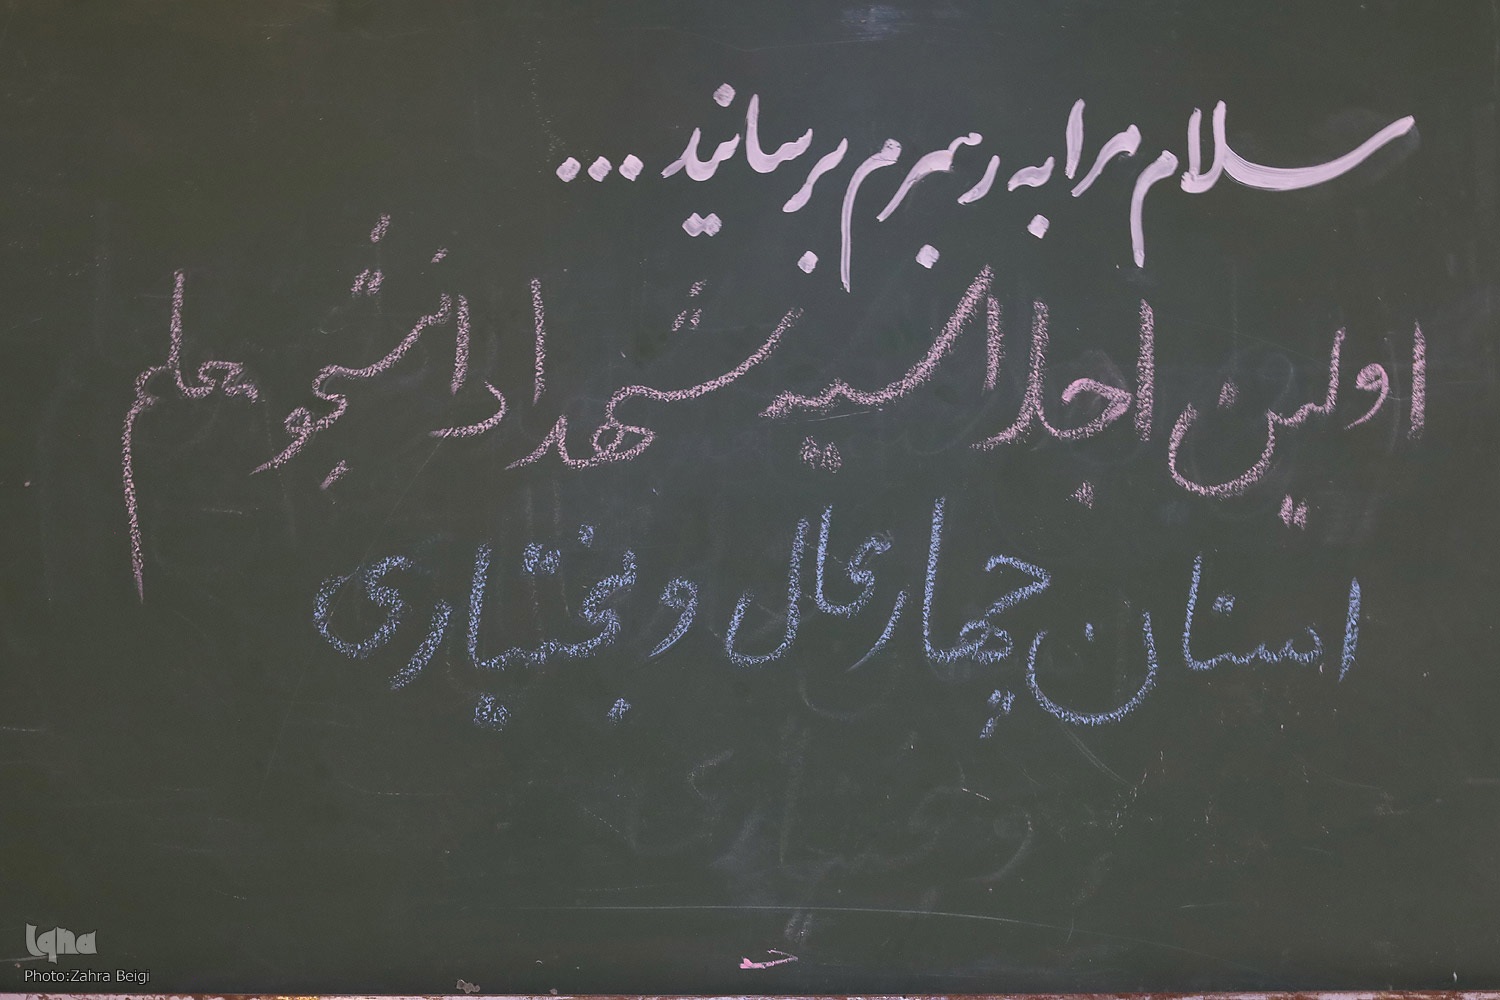 سلام مرا به رهبرم برسانید...
اولین اجلاسیه شهدا دانشجو معلم
استان چهارمحال و بختیاری
Iqna
Photo:Zahra Beigi